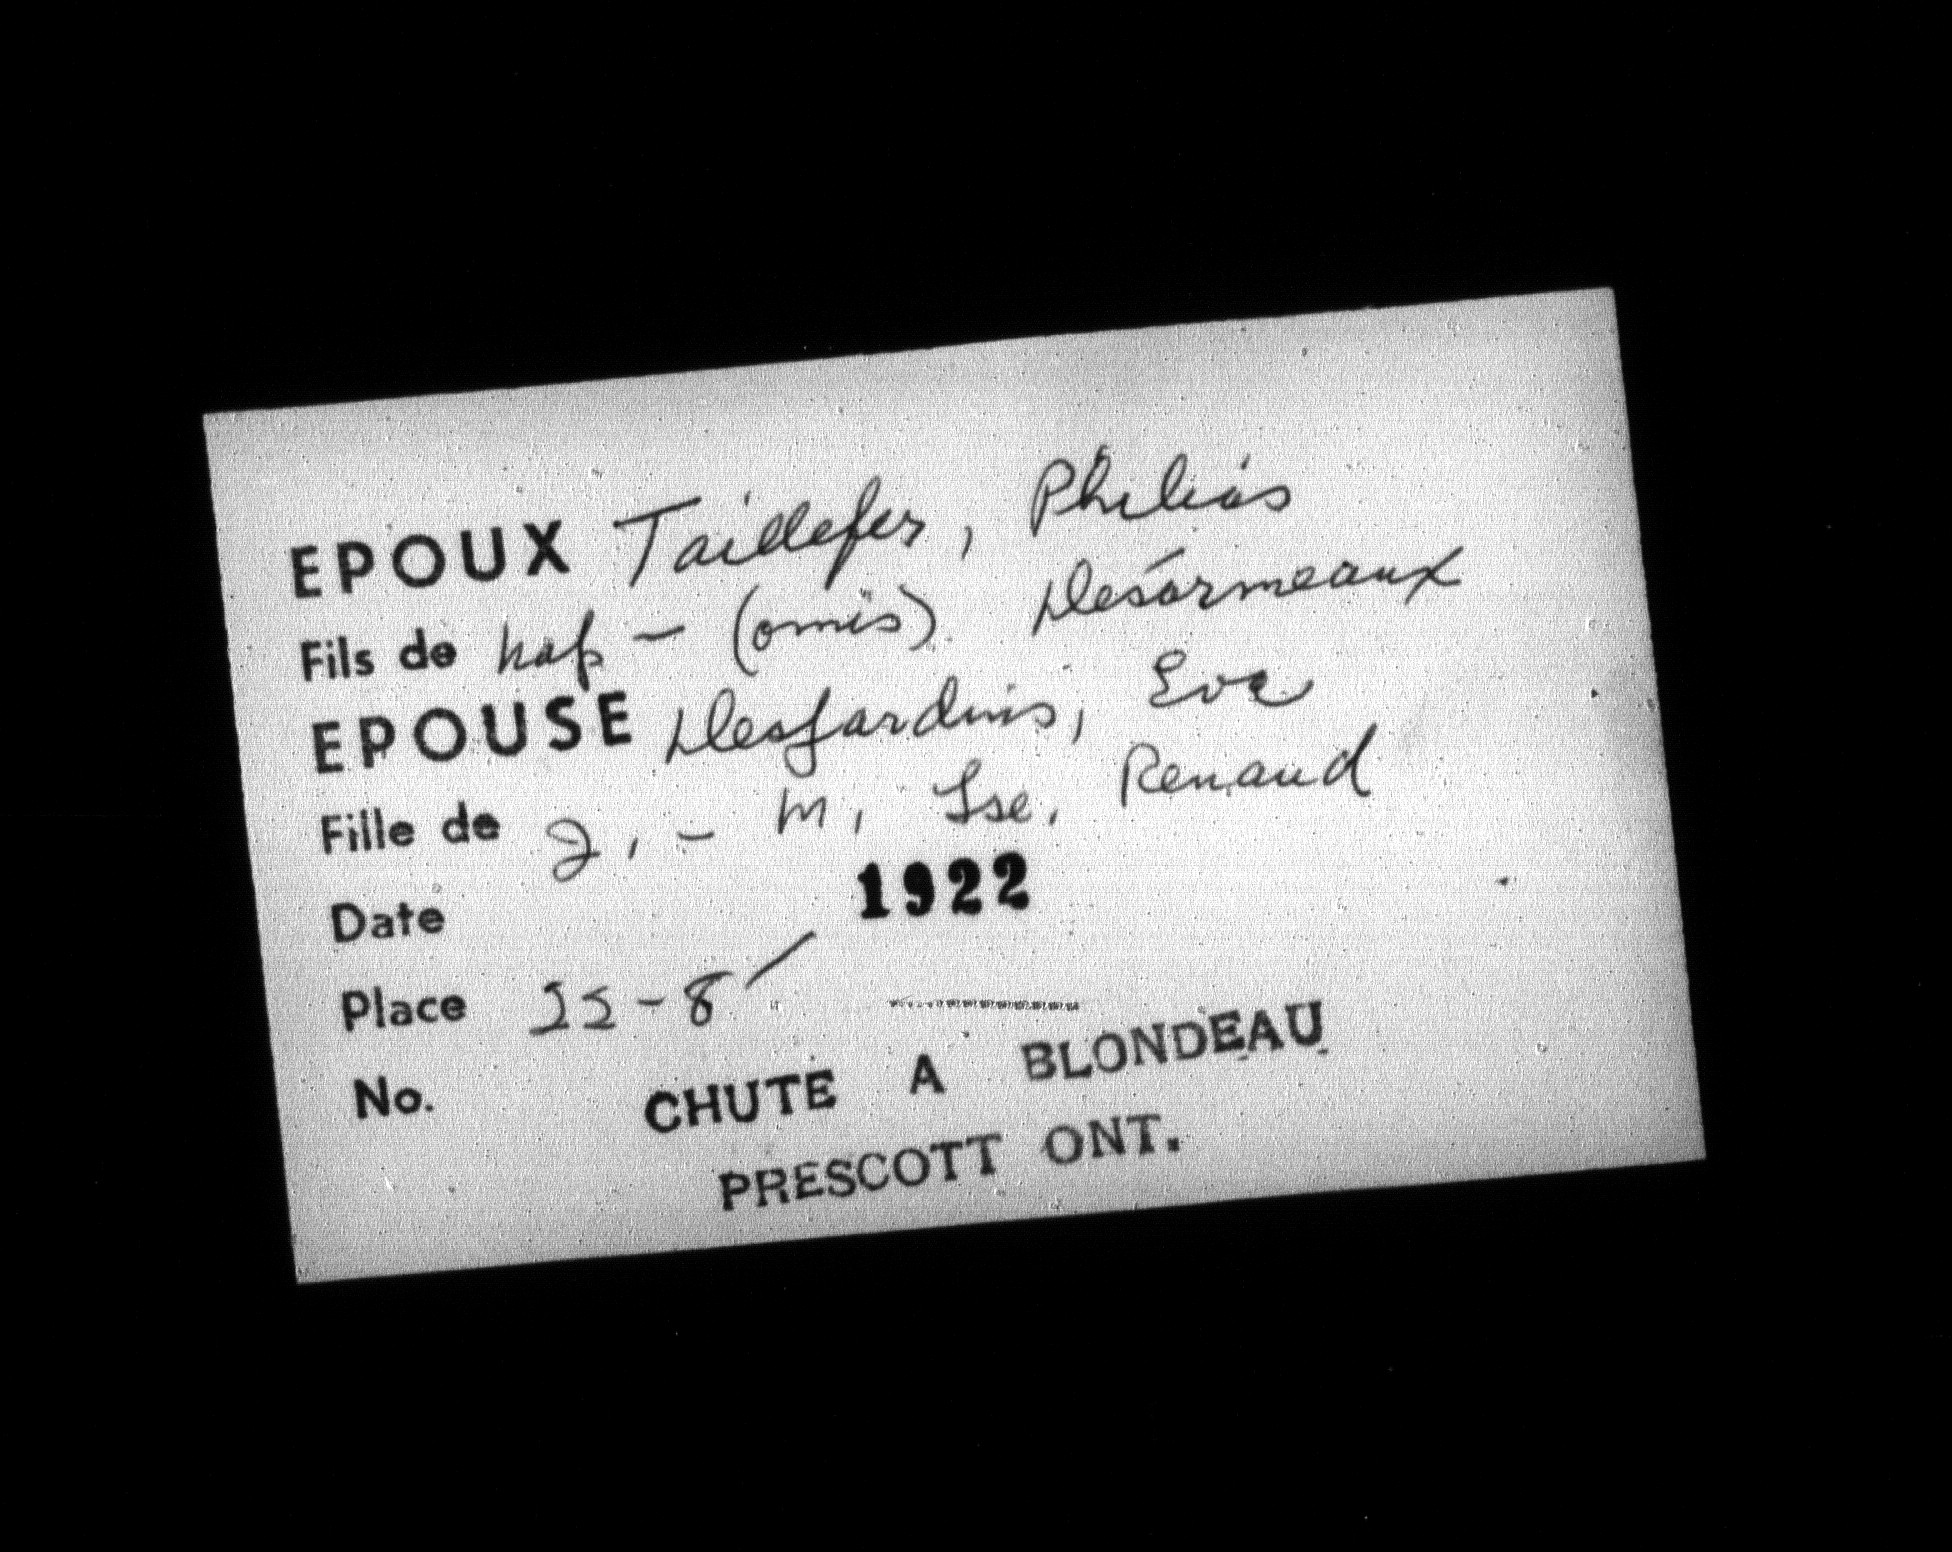 EPOUX Taillefer, Philias
Fils de Nap - (omis) Desormeaux
EPOUSE Desjardins, Eva
Fille de J, - M, Lse, Renaud
Date 1922
Place 25-8
No.
CHUTE A BLONDEAU
PRESCOTT ONT.